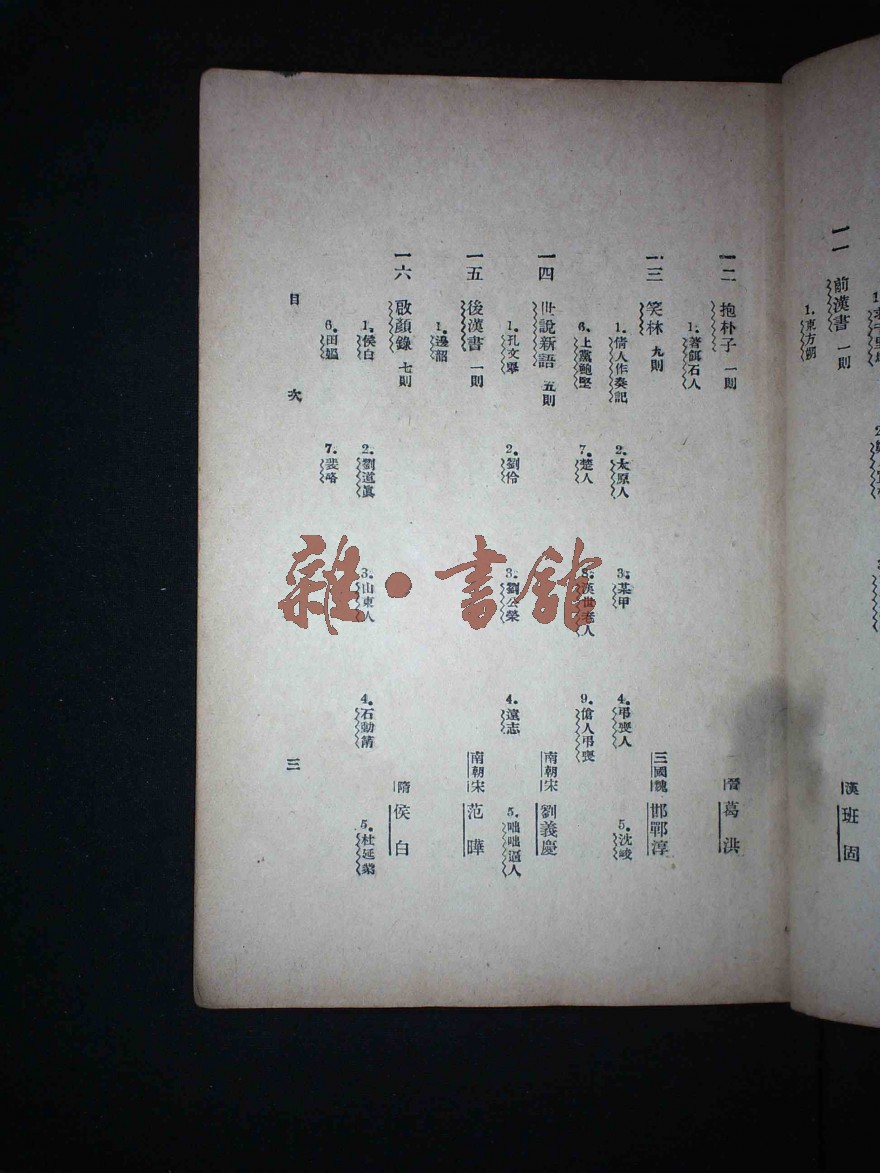 一一 前漢書 一則 漢 班固
1. 東方朔
一二 抱朴子 一則 晉 葛洪
1. 著餌石人
一三 笑林 九則 三國魏 邯鄲淳
1. 倩人作奏記 2. 太原人 3. 某甲 4. 弔喪人 5. 沈峻
6. 上黨鮑堅 7. 楚人 8. 漢世老人 9. 傖人弔喪
一四 世說新語 五則 南朝宋 劉義慶
1. 孔文舉 2. 劉伶 3. 劉公榮 4. 遠志 5. 咄咄逼人
一五 後漢書 一則 南朝宋 范曄
1. 邊韶
一六 啟顏錄 七則 隋 侯白
1. 侯白 2. 劉道眞 3. 山東人 4. 石動筩 5. 杜延業
6. 田媼 7. 裴略
目次 三
雜·書館